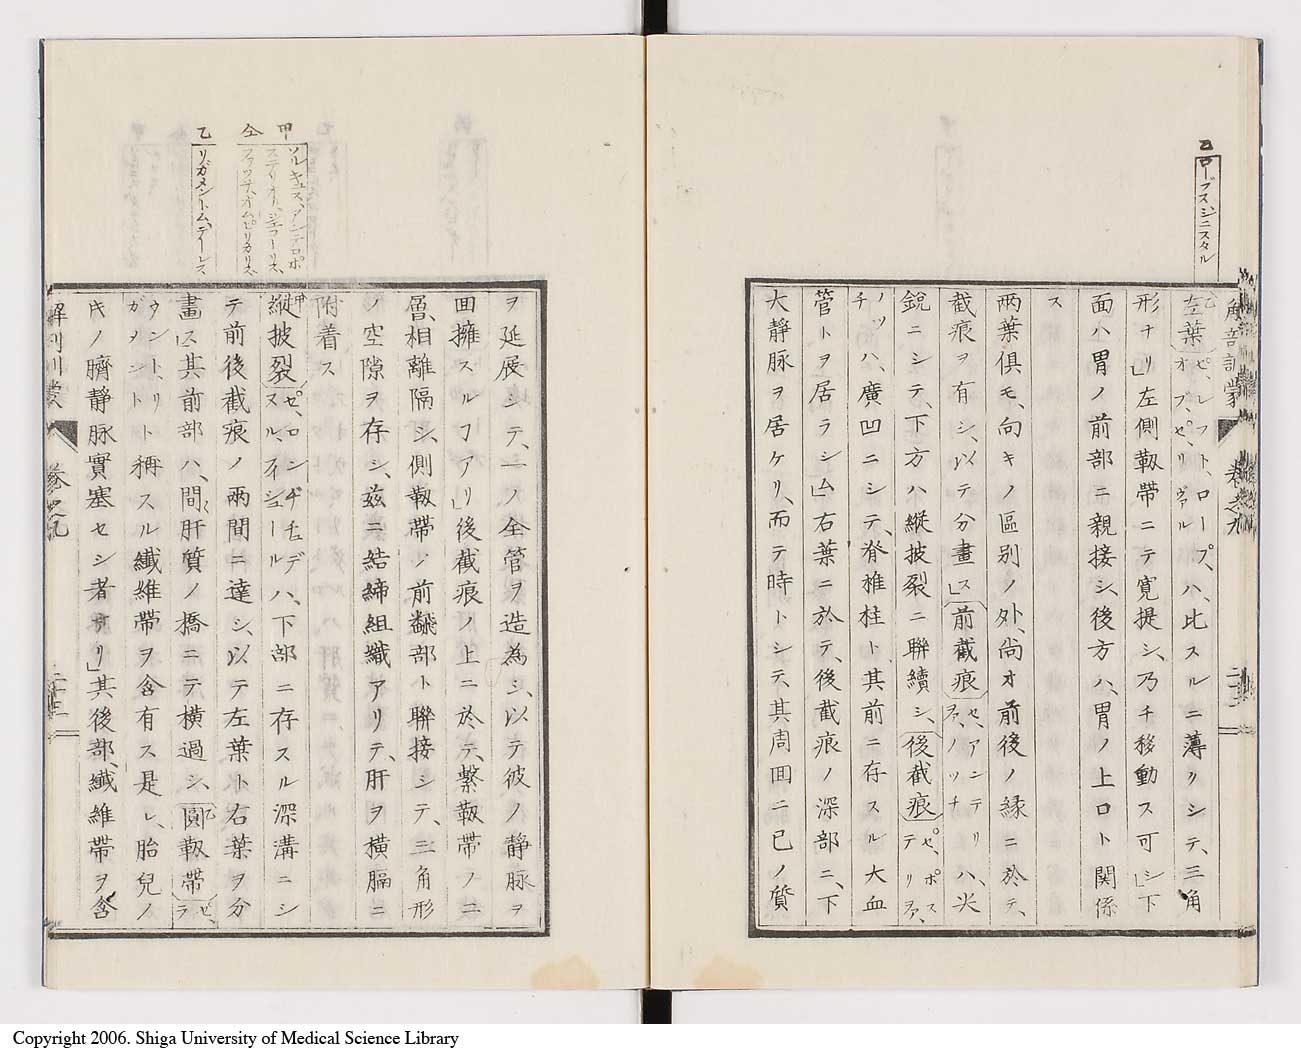 乙
ローブス、ジニスタル
解剖訓蒙 卷之九
乙左葉(ゼ、レフト、ロープ、オブ、ゼ、リヴァル)ハ、比スルニ薄クシテ、三角
形ナリ」左側靱帶ニテ寛提シ、乃チ移動ス可シ」下
面ハ胃ノ前部ニ親接シ、後方ハ、胃ノ上口ト関係
ス
兩葉俱モ、向キノ區別ノ外、尚オ前後ノ緣ニ於テ、
截痕ヲ有シ、以テ分畫ス」前截痕(ゼ、アンテリヲア、ノッナ)ハ、尖
鋭ニシテ、下方ハ縱披裂ニ聯續シ、後截痕(ゼ、ポステリヲア、
ノッチ)ハ、廣凹ニシテ、脊椎柱ト、其前ニ存スル大血
管トヲ居ラシム」右葉ニ於テ、後截痕ノ深部ニ、下
大靜脉ヲ居ケリ、而テ時トシテ、其周囬ニ已ノ質
ヲ延展シテ、一ノ全管ヲ造為シ、以テ彼ノ静脉ヲ
囬擁スルヿアリ」後截痕ノ上ニ於テ、繫靱帶ノ二
層、相離隔シ、側靱帶ノ前飜部ト聯接シテ、三角形
ノ空隙ヲ存シ、茲ニ結締組織アリテ、肝ヲ横膈ニ
附着ス
甲
ソルキュス、アンテロポ
ステリオル、ジェコーリス、
仝
フヲッサ、オムビリカリス、
乙
リガメントム、テーレス
甲縱披裂(ゼ、ロンヂチュデヌル、フィシュール)ハ、下部ニ存スル深溝ニシ
テ前後截痕ノ兩間ニ達シ、以テ左葉ト右葉ヲ分
畫ス」其前部ハ、間〻肝質ノ橋ニテ横過シ、乙圓靱帶(ゼ、ラ
ウント、リガメント)ト稱スル纎維帶ヲ含有ス是レ、胎兒ノ
片ノ臍静脉實塞セシ者ナリ」其後部、纎維帶ヲ含
解剖訓蒙 卷之九